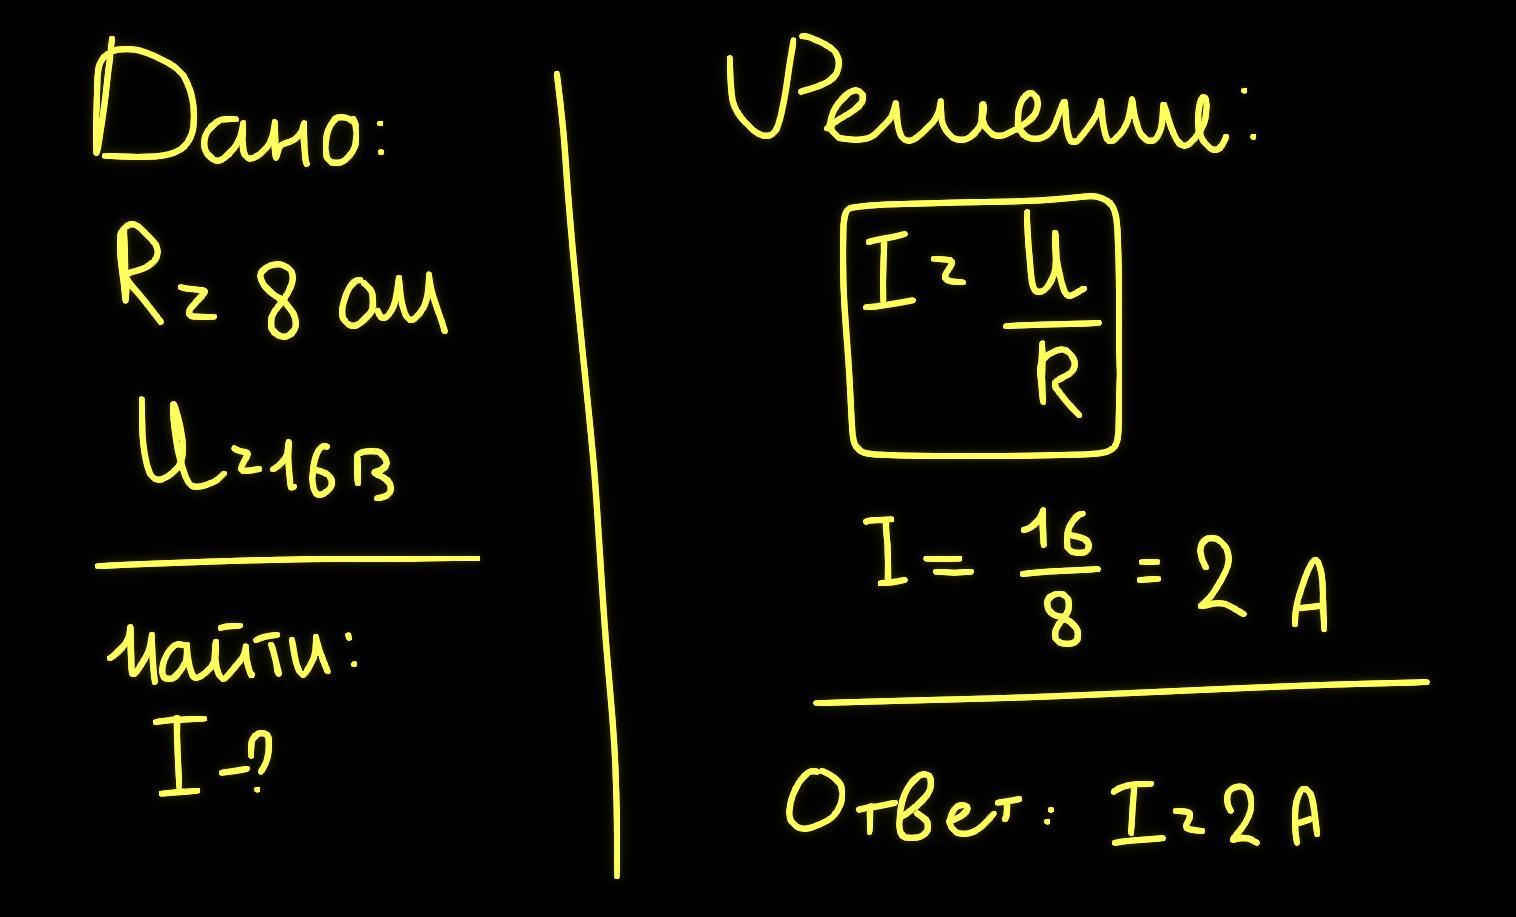 Дано:
R = 8 ом
U = 16 В
найти:
I - ?
Решение:
I = U/R
I = 16/8 = 2 А
Ответ: I = 2 А